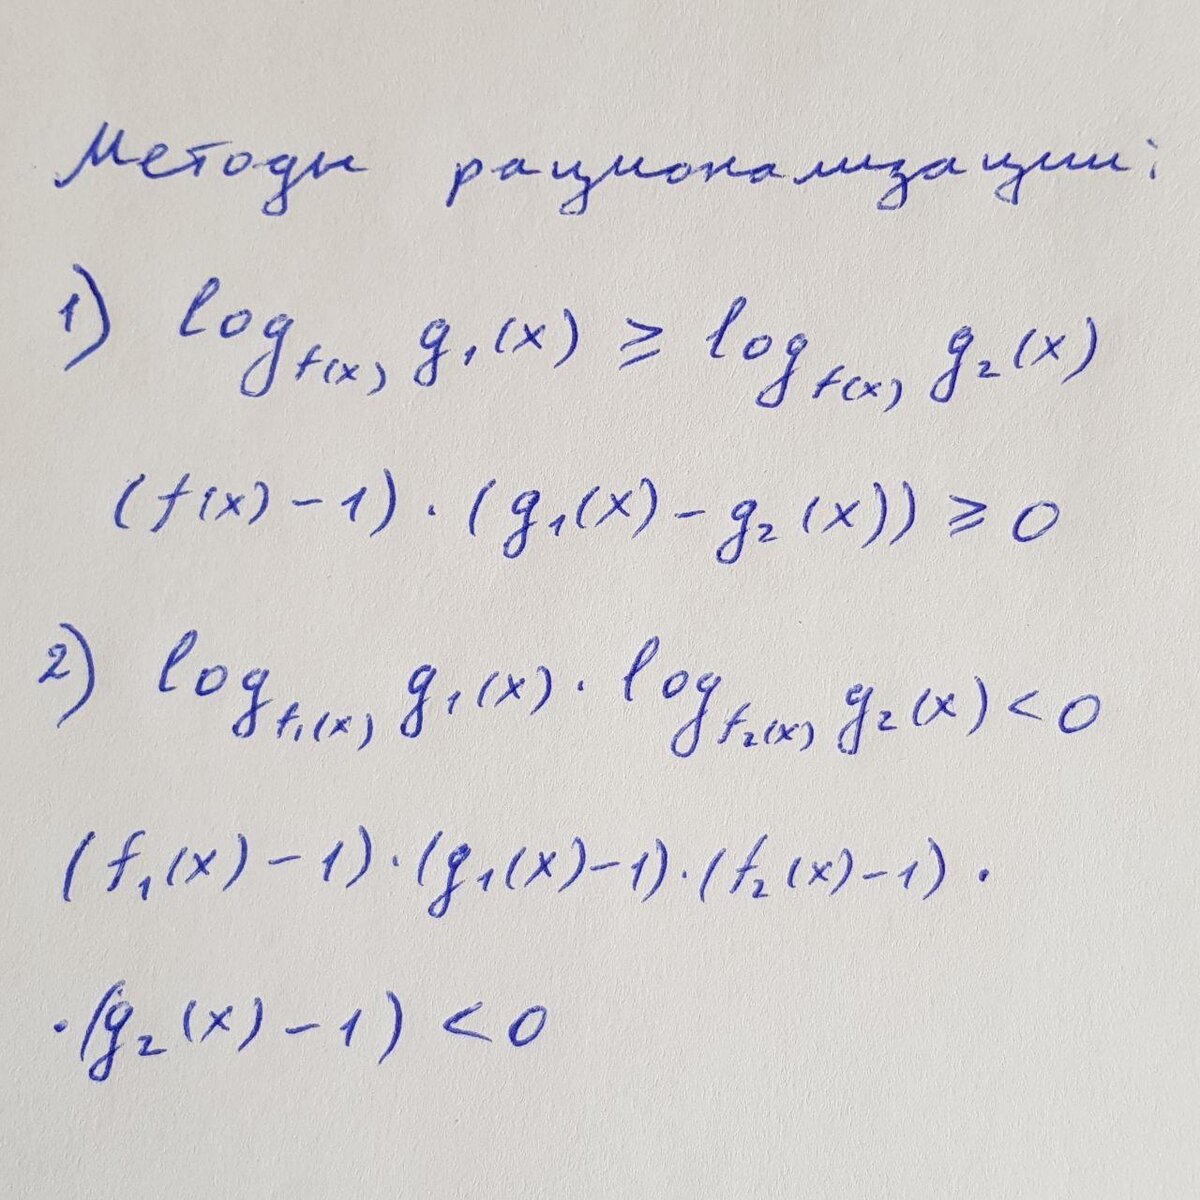 Методы рационализации:
1) log_f(x) g₁(x) ≥ log_f(x) g₂(x)
(f(x) - 1) · (g₁(x) - g₂(x)) ≥ 0
2) log_f₁(x) g₁(x) · log_f₂(x) g₂(x) < 0
(f₁(x) - 1) · (g₁(x) - 1) · (f₂(x) - 1) ·
· (g₂(x) - 1) < 0